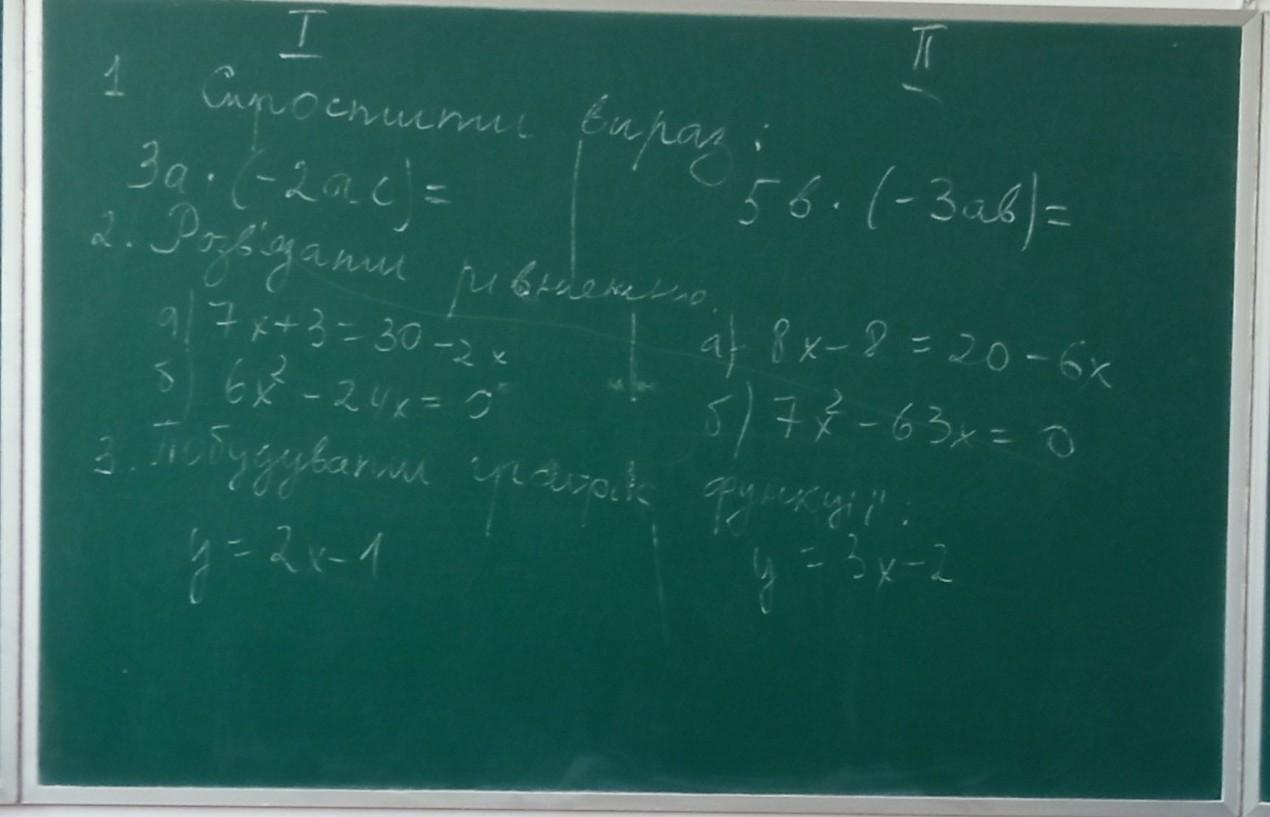 I II
1 Спростити вираз:
3a · (-2ac) = 5b · (-3ab) =
2. Розв'язати рівняння.
а) 7x + 3 = 30 - 2x а) 8x - 8 = 20 - 6x
б) 6x² - 24x = 0 б) 7x² - 63x = 0
3. Побудувати графік функції:
y = 2x - 1 y = 3x - 2